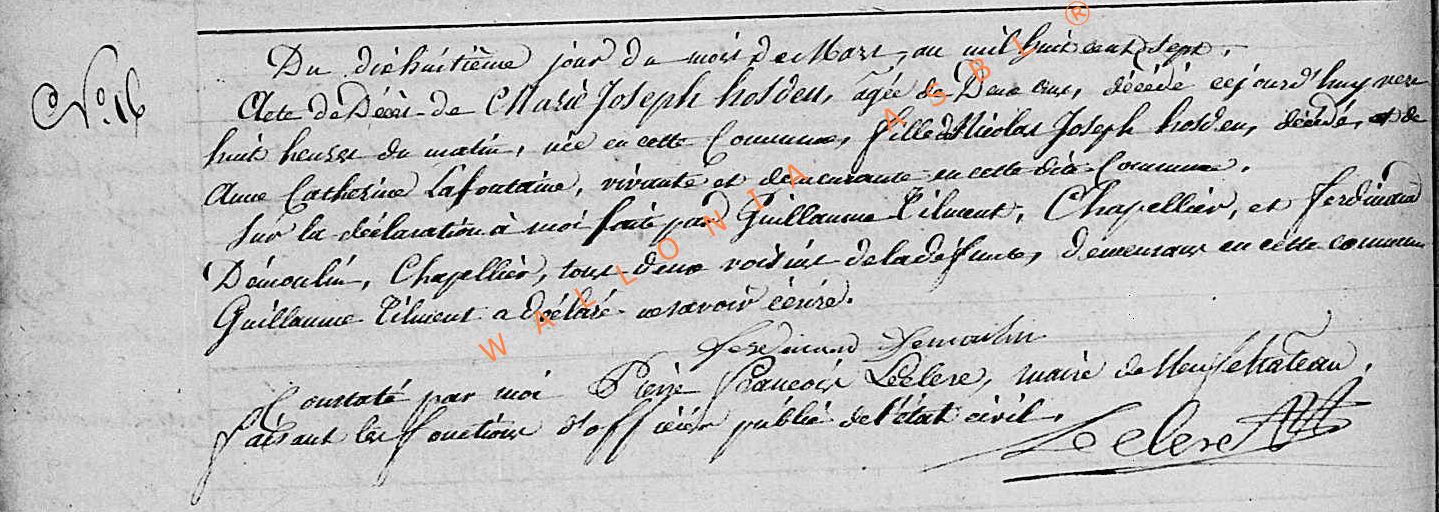 N.° 16
Du dixhuitième jour du mois de Mars, an mil huit cent sept.
Acte de Décès de Marie Joseph hosdeu, agée de Deux ans, décédé cejourd'huy vers
huit heures du matin, née en cette Commune, fille de Nicolas Joseph hosdeu, décédé, et de
Anne Catherine Lafontaine, vivante et demeurante en cette dite Commune.
Sur la déclaration à moi faite par Guillaume Tilment, Chapellier, et ferdinand
Demoulin, Chapellier, tous deux voisins de la défunte, demeurans en cette commune
Guillaume Tilment a déclaré ne savoir écrire.
ferdinand Demoulin
Constaté par moi Pierre François Leclerc, maire de Neufchateau,
faisant les fonctions d'officier public de l'état civil.
Leclerc
WALLONIA ASBL ®